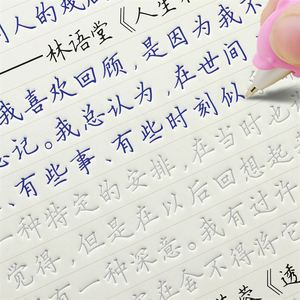 人的戏
——林语堂《人生
我喜欢回顾，是因为我不
忘记。我总认为，在世间
、有些事、有些时刻似
一种特定的安排，在当时也
觉得，但是在以后回想起
有一种深意。我有过许
在舍不得将它
蓉《透